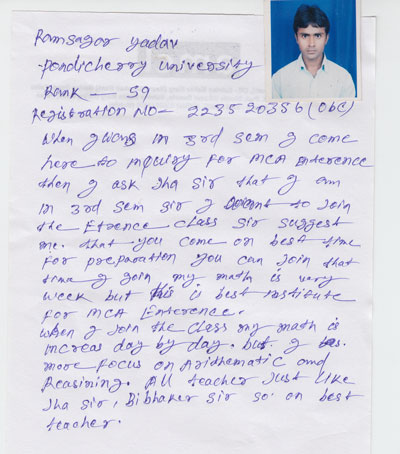 Ramsagar yadav
-Pondicherry university
Rank — 59
Registration No- 223520356 (Obc)
When I wans in 3rd sem I come
here to inquiry for MCA Enterence
then I ask Jha sir that I am
in 3rd sem sir I want to join
the Etrence class sir suggest
me. that you come on best time
for preparation you can join that
time I join my math is very
week but this is best institute
for MCA Enterence.
when I join the class my math is
increas day by day. but I
more focus on Arithematic and
Reasining. All teacher Just like
Jha sir, Bibhaker sir so on best
teacher.